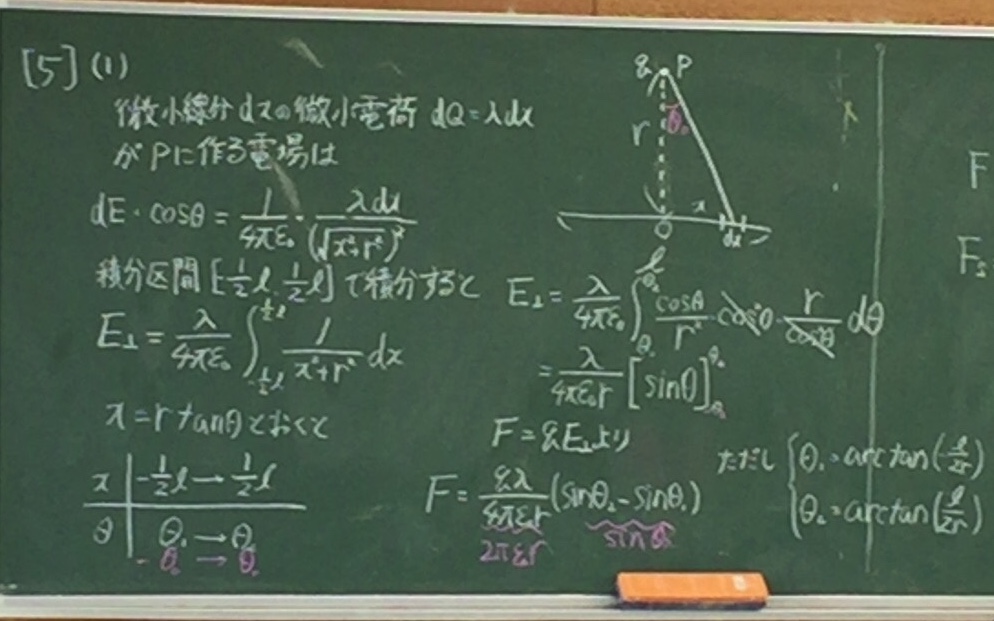 [5] (1)
微小線分dxの微小電荷 dQ=λdx
がPに作る電場は
dE・cosθ = 1/4πε₀ · λdx/(√x²+r²)²
積分区間[-1/2 l, 1/2 l]で積分すると
E⊥ = λ/4πε₀ ∫_{-1/2 l}^{1/2 l} 1/x²+r² dx
x=r tanθとおくと
x | -1/2 l → 1/2 l
θ | θ₁ → θ₂
-θ₀ → θ₀
q P
r θ₀
x
O dx
l
E⊥ = λ/4πε₀ ∫_{θ₁}^{θ₂} cosθ/r² · cos²θ · r/cos²θ dθ
= λ/4πε₀r [sinθ]
F=qE⊥より
F = qλ/4πε₀r (sinθ₂-sinθ₁)
2πε₀r sinθ₀
ただし { θ₁=arctan(-l/2r)
θ₂=arctan(l/2r)
F
F